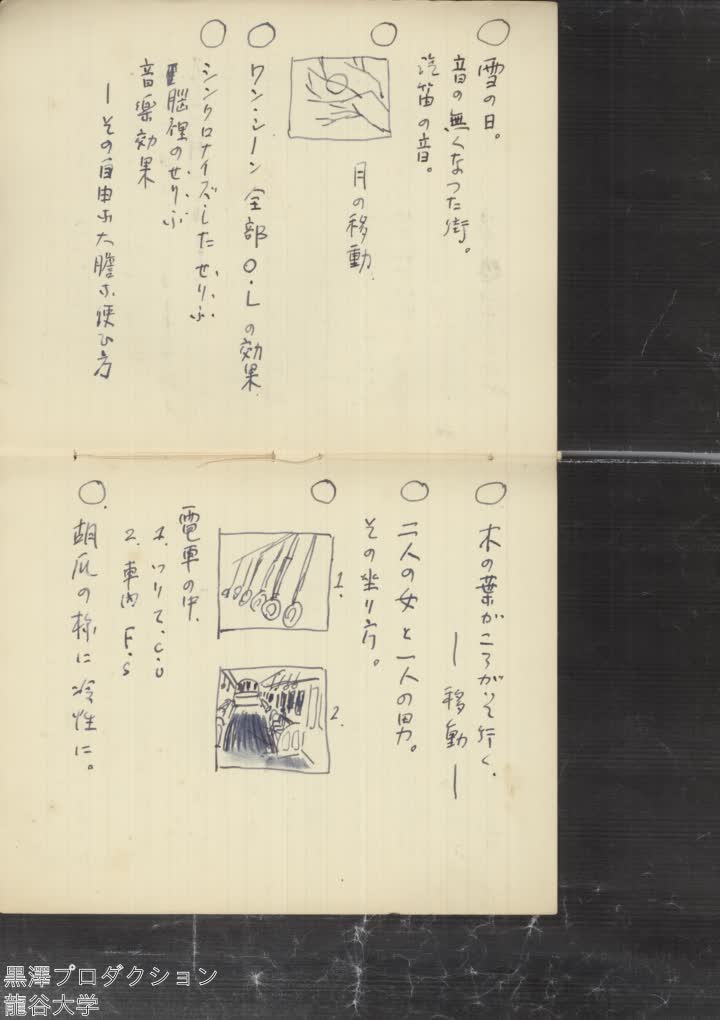 雪の日。
音の無くなつた街。
汽笛の音。
月の移動.
ワン・シーン 全部 O.Lの効果.
シンクロナイズした せりふ
脳裡のせりふ
音楽効果
ーその自由な大膽な使ひ方
木の葉がころがつて行く.
ー 移動 ー
二人の女と一人の男。
その坐り方。
1.
2.
電車の中.
1. つりて.C.U
2. 車内 F.S
胡瓜の様に冷性に。
黒澤プロダクション
龍谷大学